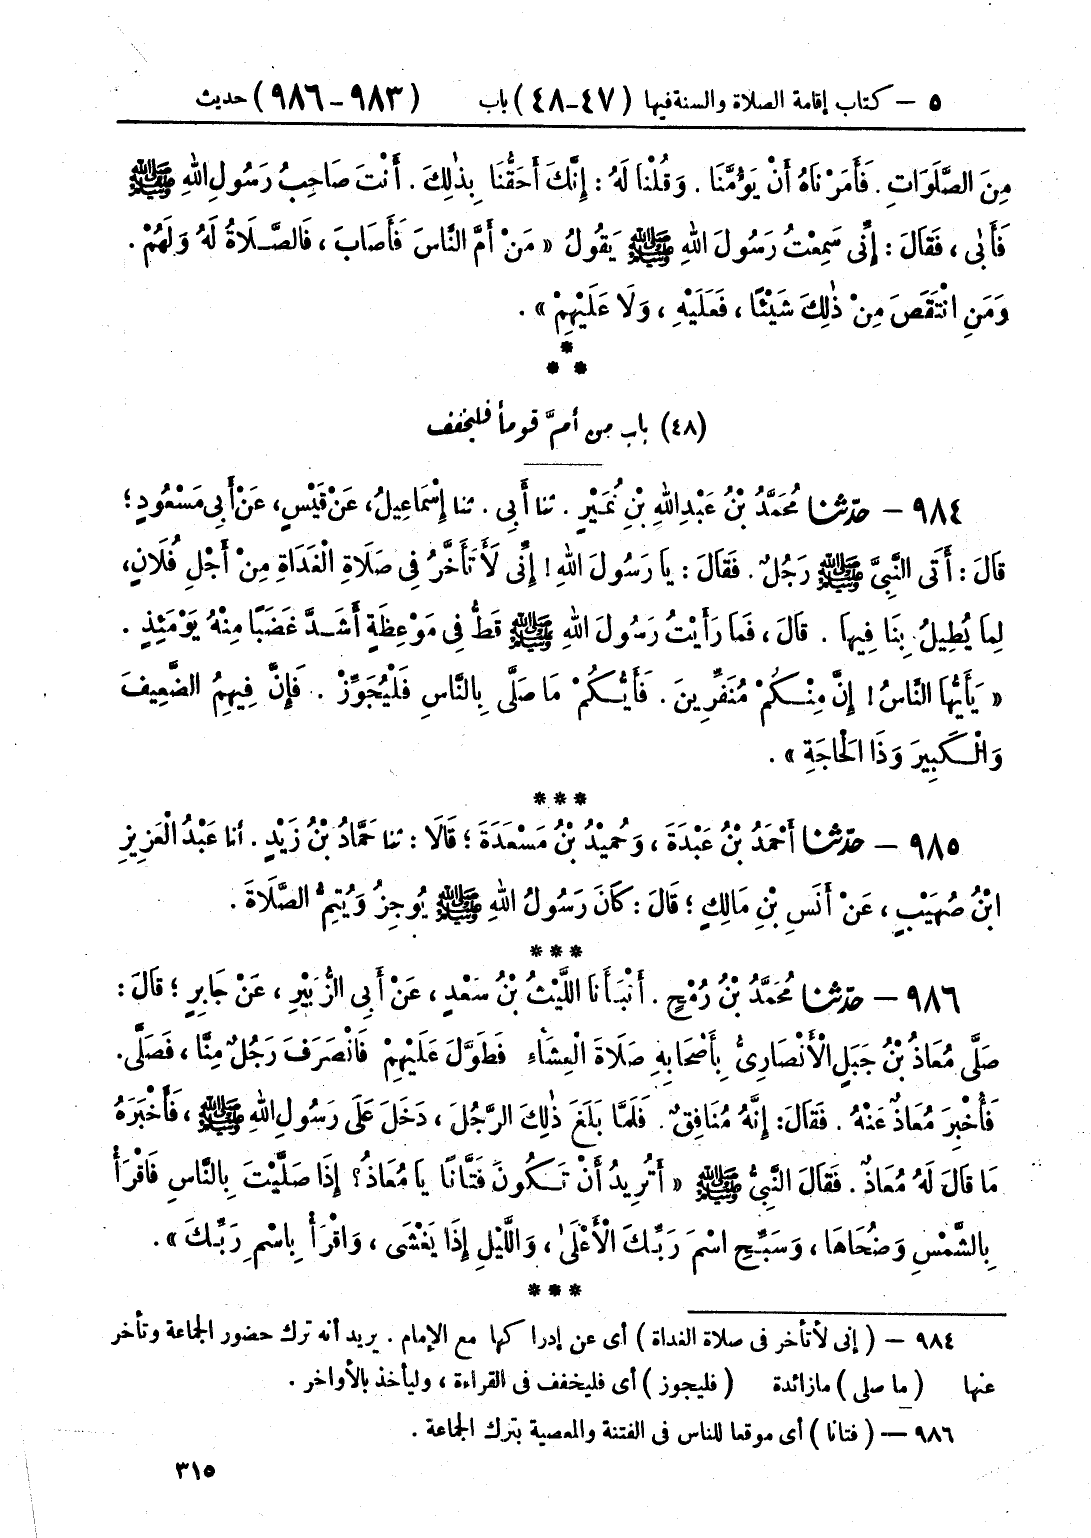 ٥ – كتاب إقامة الصلاة والسنة فيها (٤٧-٤٨) باب (٩٨٣-٩٨٦) حديث
مِنَ الصَّلَوَاتِ. فَأَمَرْنَاهُ أَنْ يَؤُمَّنَا. وَقُلْنَا لَهُ: إِنَّكَ أَحَقُّنَا بِذٰلِكَ. أَنْتَ صَاحِبُ رَسُولِ اللهِ ﷺ
فَأَبٰى، فَقَالَ: إِنِّى سَمِعْتُ رَسُولَ اللهِ ﷺ يَقُولُ « مَنْ أَمَّ النَّاسَ فَأَصَابَ، فَالصَّلَاةُ لَهُ وَلَهُمْ.
وَمَنِ انْتَقَصَ مِنْ ذٰلِكَ شَيْئًا، فَعَلَيْهِ، وَلَا عَلَيْهِمْ ».
*
* *
(٤٨) باب من أمَّ قوماً فليخفف
٩٨٤ – حدّثنا مُحَمَّدُ بْنُ عَبْدِ اللهِ بْنِ نُمَيْرٍ. ثنا أَبِى. ثنا إِسْمَاعِيلُ، عَنْ قَيْسٍ، عَنْ أَبِى مَسْعُودٍ؛
قَالَ: أَتَى النَّبِىَّ ﷺ رَجُلٌ. فَقَالَ: يَا رَسُولَ اللهِ! إِنِّى لَأَتَأَخَّرُ فِى صَلَاةِ الْغَدَاةِ مِنْ أَجْلِ فُلَانٍ،
لِمَا يُطِيلُ بِنَا فِيهَا. قَالَ، فَمَا رَأَيْتُ رَسُولَ اللهِ ﷺ قَطُّ فِى مَوْعِظَةٍ أَشَدَّ غَضَبًا مِنْهُ يَوْمَئِذٍ.
« يَأَيُّهَا النَّاسُ! إِنَّ مِنْكُمْ مُنَفِّرِينَ. فَأَيُّكُمْ مَا صَلَّى بِالنَّاسِ فَلْيُجَوِّزْ. فَإِنَّ فِيهِمُ الضَّعِيفَ
وَالْكَبِيرَ وَذَا الْحَاجَةِ ».
* * *
٩٨٥ – حدّثنا أَحْمَدُ بْنُ عَبْدَةَ، وَحُمَيْدُ بْنُ مَسْعَدَةَ؛ قَالَا: ثنا حَمَّادُ بْنُ زَيْدٍ. أنا عَبْدُ الْعَزِيزِ
ابْنُ صُهَيْبٍ، عَنْ أَنَسِ بْنِ مَالِكٍ؛ قَالَ: كَانَ رَسُولُ اللهِ ﷺ يُوجِزُ وَيُتِمُّ الصَّلَاةَ.
* * *
٩٨٦ – حدّثنا مُحَمَّدُ بْنُ رُمْحٍ. أَنْبَأَنَا اللَّيْثُ بْنُ سَعْدٍ، عَنْ أَبِى الزُّبَيْرِ، عَنْ جَابِرٍ؛ قَالَ:
صَلَّى مُعَاذُ بْنُ جَبَلٍ الْأَنْصَارِىُّ بِأَصْحَابِهِ صَلَاةَ الْعِشَاءِ فَطَوَّلَ عَلَيْهِمْ فَانْصَرَفَ رَجُلٌ مِنَّا، فَصَلَّى.
فَأُخْبِرَ مُعَاذٌ عَنْهُ. فَقَالَ: إِنَّهُ مُنَافِقٌ. فَلَمَّا بَلَغَ ذٰلِكَ الرَّجُلَ، دَخَلَ عَلَى رَسُولِ اللهِ ﷺ، فَأَخْبَرَهُ
مَا قَالَ لَهُ مُعَاذٌ. فَقَالَ النَّبِىُّ ﷺ « أَتُرِيدُ أَنْ تَكُونَ فَتَّانًا يَا مُعَاذُ؟ إِذَا صَلَّيْتَ بِالنَّاسِ فَاقْرَأْ
بِالشَّمْسِ وَضُحَاهَا، وَسَبِّحِ اسْمَ رَبِّكَ الْأَعْلَىٰ، وَاللَّيْلِ إِذَا يَغْشَى، وَاقْرَأْ بِاسْمِ رَبِّكَ ».
* * *
٩٨٤ – (إنى لأتأخر فى صلاة الغداة) أى عن إدراكها مع الإمام. يريد أنه ترك حضور الجماعة وتأخر
عنها (ما صلى) ما زائدة (فليجوز) أى فليخفف فى القراءة، وليأخذ بالأواخر.
٩٨٦ – (فتانا) أى موقعا للناس فى الفتنة والمعصية بترك الجماعة.
٣١٥